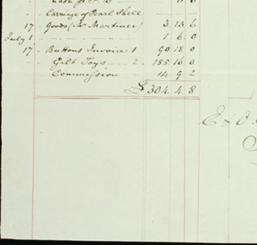 " Carriage of Pearl Shell
17 " Goods per Martineu 3. 13. 6
July 1 1. 6. 0
17 " Buttons Invoice 1 90. 18. 0
" Gilt Toys 2 185. 16. 0
Commission 14. 9. 2
£304. 4. 8
E & O